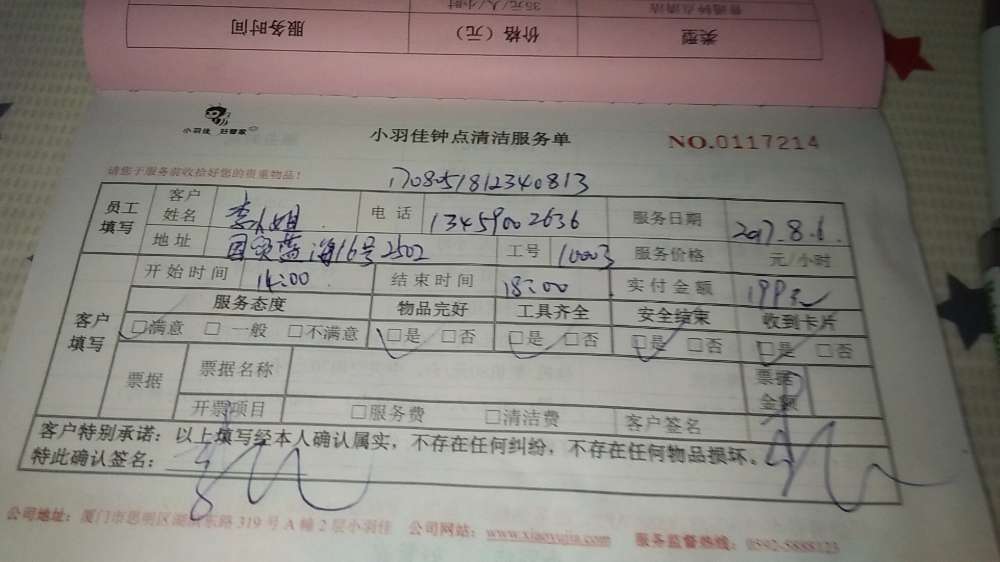 普通钟点清洁 35元/人/小时
类型 价格（元） 服务时间
小羽佳 好管家
小羽佳钟点清洁服务单
NO.0117214
请您于服务前收拾好您的贵重物品！
170805181234 0813
员工填写 客户姓名 李小姐 电话 13459002636 服务日期 2017.8.6.
地址 国贸蓝海16号2502 工号 10003 服务价格 元/小时
客户填写 开始时间 14:00 结束时间 18:00 实付金额 199元
服务态度 物品完好 工具齐全 安全结束 收到卡片
□满意 □一般 □不满意 □是 □否 □是 □否 □是 □否 □是 □否
票据 票据名称 票据金额
开票项目 □服务费 □清洁费 客户签名
客户特别承诺：以上填写经本人确认属实，不存在任何纠纷，不存在任何物品损坏。
特此确认签名：
公司地址：厦门市思明区湖滨东路319号A幢2层小羽佳 公司网站：www.xiaoyujia.com 服务监督热线：0592-5888123